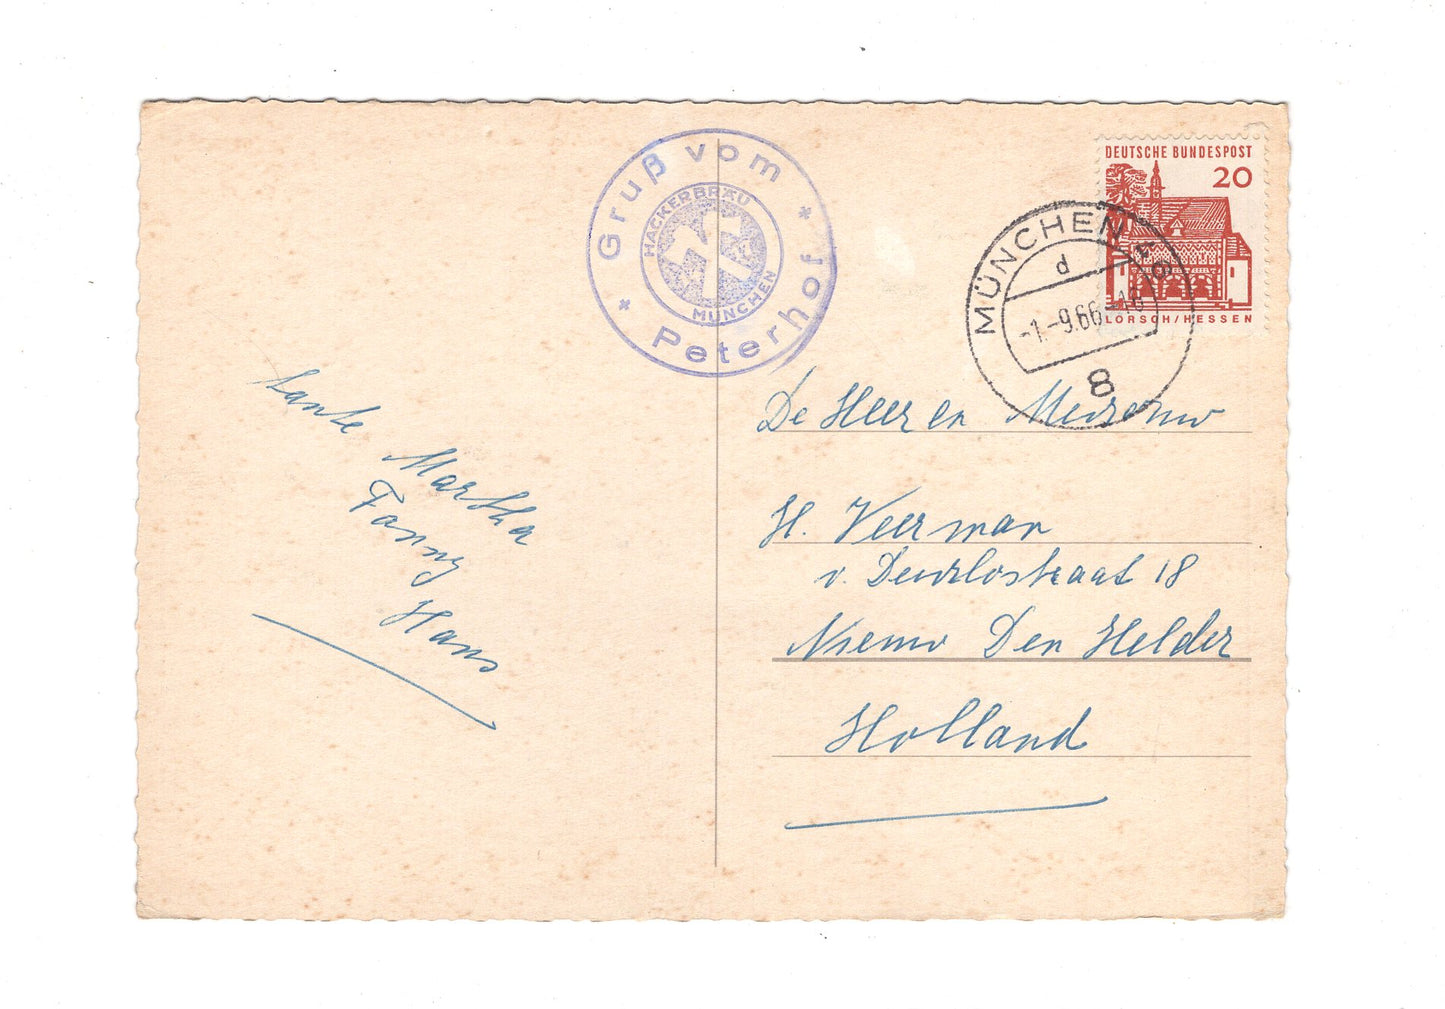 Gruß vom
Peterhof
HACKERBRÄU
MÜNCHEN
DEUTSCHE BUNDESPOST
20
LORSCH/HESSEN
MÜNCHEN
d
-1.-9.66-16
8
tante
Martha
Fanny
Hans
De Heer en Mevrouw
H. Veerman
v. 18
Nieuw Den Helder
Holland